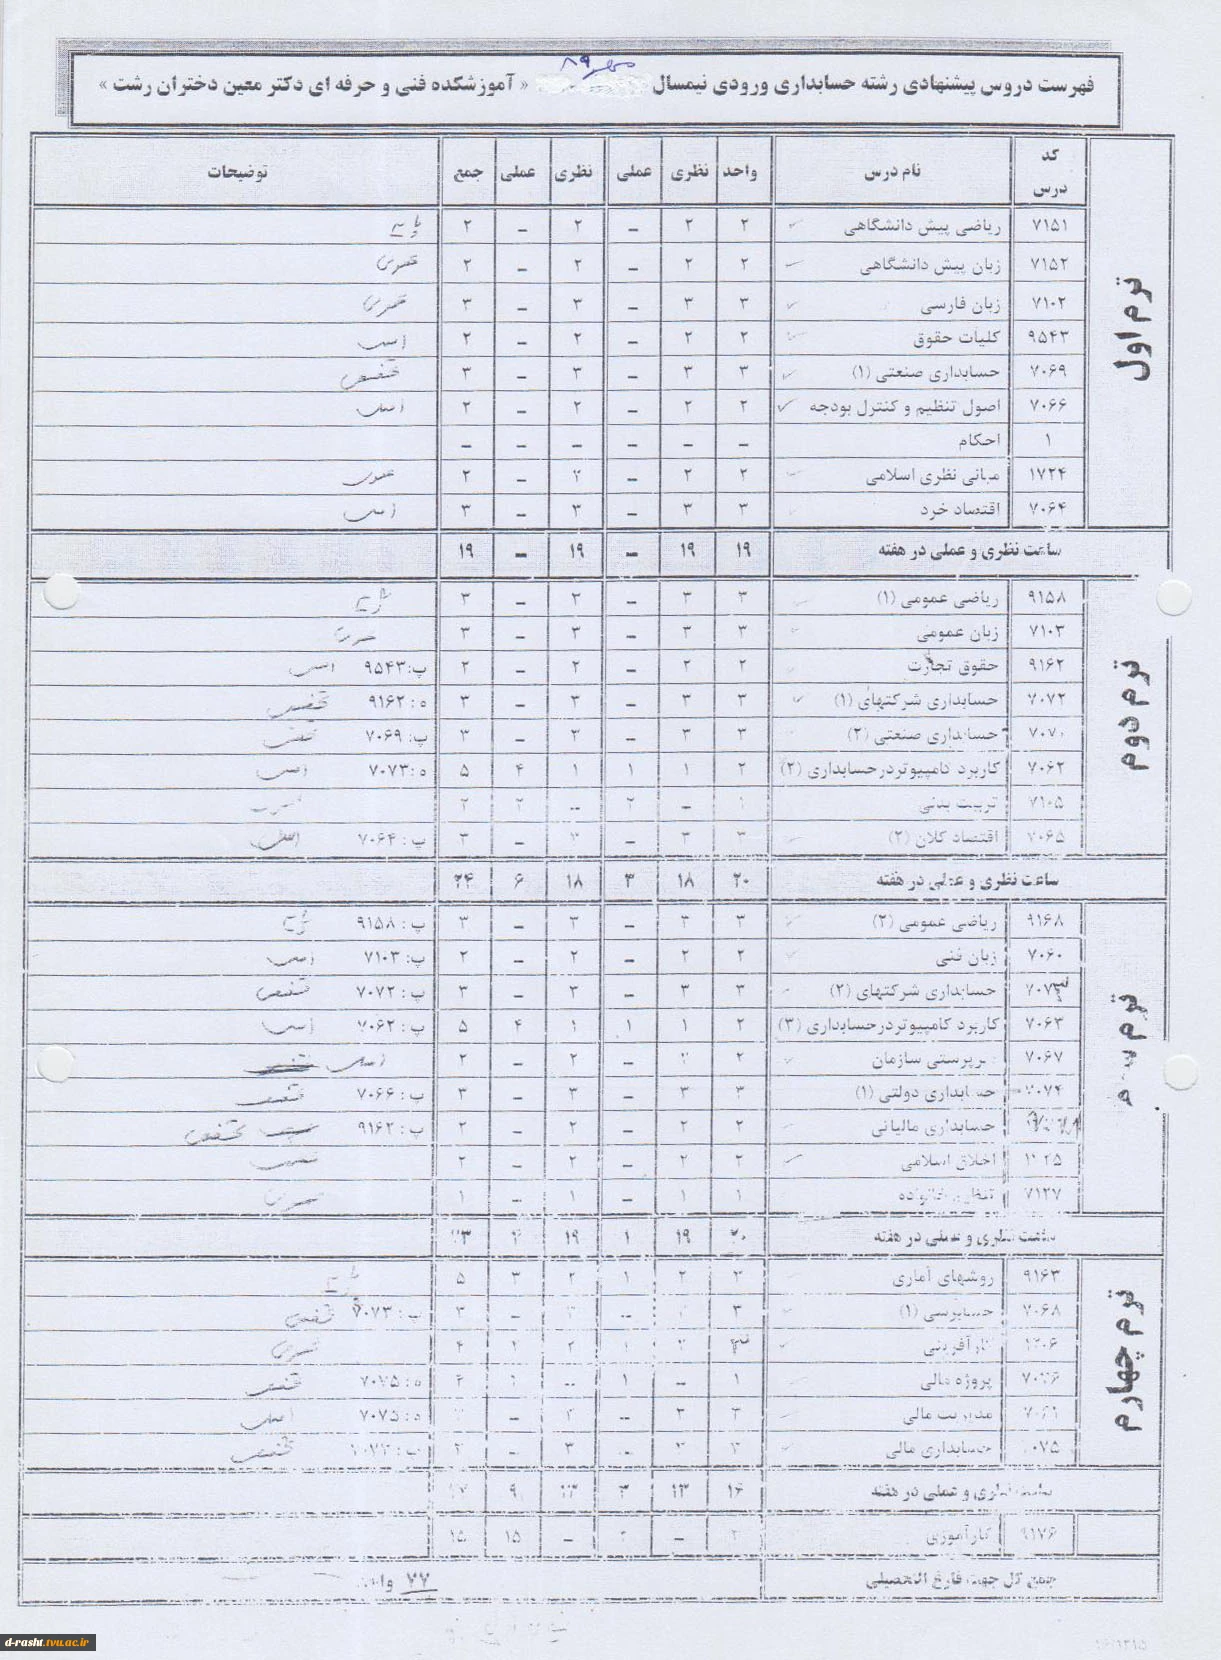 فهرست دروس پیشنهادی رشته حسابداری ورودی نیمسال مهر ۸۹ « آموزشکده فنی و حرفه ای دکتر معین دختران رشت »
کد درس نام درس واحد نظری عملی نظری عملی جمع توضیحات
ترم اول
۷۱۵۱ ریاضی پیش دانشگاهی ۲ ۲ – ۲ – ۲ پایه
۷۱۵۲ زبان پیش دانشگاهی ۲ ۲ – ۲ – ۲ عمومی
۷۱۰۲ زبان فارسی ۳ ۳ – ۳ – ۳ عمومی
۹۵۴۳ کلیات حقوق ۲ ۲ – ۲ – ۲ اصلی
۷۰۶۹ حسابداری صنعتی (۱) ۳ ۳ – ۳ – ۳ تخصصی
۷۰۶۶ اصول تنظیم و کنترل بودجه ۲ ۲ – ۲ – ۲ اصلی
۱ احکام – – – – – –
۱۷۲۴ مبانی نظری اسلامی ۲ ۲ – ۲ – ۲ عمومی
۷۰۶۴ اقتصاد خرد ۳ ۳ – ۳ – ۳ اصلی
ساعت نظری و عملی در هفته ۱۹ ۱۹ – ۱۹ – ۱۹
ترم دوم
۹۱۵۸ ریاضی عمومی (۱) ۳ ۳ – ۳ – ۳ پایه
۷۱۰۳ زبان عمومی ۳ ۳ – ۳ – ۳ عمومی
۹۱۶۲ حقوق تجارت ۲ ۲ – ۲ – ۲ پ: ۹۵۴۳ اصلی
۷۰۷۲ حسابداری شرکتهای (۱) ۳ ۳ – ۳ – ۳ ه: ۹۱۶۲ تخصصی
۷۰۷۰ حسابداری صنعتی (۲) ۳ ۳ – ۳ – ۳ پ: ۷۰۶۹ تخصصی
۷۰۶۲ کاربرد کامپیوتردرحسابداری (۲) ۲ ۱ ۱ ۱ ۴ ۵ ه: ۷۰۷۳ اصلی
۷۱۰۵ تربیت بدنی ۱ – ۲ – ۲ ۲ عمومی
۷۰۶۵ اقتصاد کلان (۲) ۳ ۳ – ۳ – ۳ پ: ۷۰۶۴ اصلی
ساعت نظری و عملی در هفته ۲۰ ۱۸ ۳ ۱۸ ۶ ۲۴
ترم سوم
۹۱۶۸ ریاضی عمومی (۲) ۳ ۳ – ۳ – ۳ پ: ۹۱۵۸ پایه
۷۰۶۰ زبان فنی ۲ ۲ – ۲ – ۲ پ: ۷۱۰۳ اصلی
۷۰۷۳ حسابداری شرکتهای (۲) ۳ ۳ – ۳ – ۳ پ: ۷۰۷۲ تخصصی
۷۰۶۳ کاربرد کامپیوتردرحسابداری (۳) ۲ ۱ ۱ ۱ ۴ ۵ پ: ۷۰۶۲ اصلی
۷۰۶۷ سرپرستی سازمان ۲ ۲ – ۲ – ۲ اصلی
۷۰۷۴ حسابداری دولتی (۱) ۳ ۳ – ۳ – ۳ پ: ۷۰۶۶ تخصصی
حسابداری مالیاتی ۲ ۲ – ۲ – ۲ پ: ۹۱۶۲ تخصصی
اخلاق اسلامی ۲ ۲ – ۲ – ۲ عمومی
۷۱۲۷ تنظیم خانواده ۱ ۱ – ۱ – ۱ عمومی
ساعت نظری و عملی در هفته ۲۰ ۱۹ ۱ ۱۹ ۴ ۲۳
ترم چهارم
۹۱۶۳ روشهای آماری ۳ ۲ ۱ ۲ ۳ ۵ پایه
۷۰۶۸ حسابرسی (۱) ۳ – ۳ – ۳ پ: ۷۰۷۳ تخصصی
کارآفرینی ۳ ۲ ۱ ۲ ۲ ۴ عمومی
۷۰۷۶ پروژه مالی ۱ – ۱ – ه: ۷۰۷۵ تخصصی
۷۰۶۱ مدیریت مالی ۳ ۳ – – ه: ۷۰۷۵ اصلی
۷۰۷۵ حسابداری مالی ۳ ۳ – ۳ – ۳ پ: ۷۰۷۳ تخصصی
ساعت نظری و عملی در هفته ۱۶ ۱۳ ۳ ۱۳ ۹
۹۱۷۶ کارآموزی ۲ – ۲ – ۱۵ ۱۵
جمع کل جهت فارغ التحصیلی ۷۷ واحد
d-rasht.tvu.ac.ir